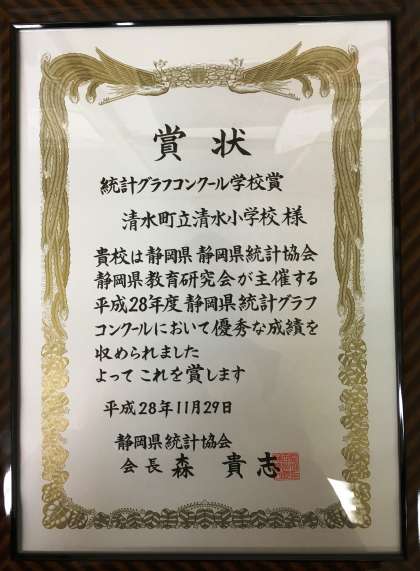 賞状
統計グラフコンクール学校賞
清水町立清水小学校 様
貴校は静岡県 静岡県統計協会
静岡県教育研究会が主催する
平成28年度静岡県統計グラフ
コンクールにおいて優秀な成績を
収められました
よって これを賞します
平成28年11月29日
静岡県統計協会
会長 森 貴志